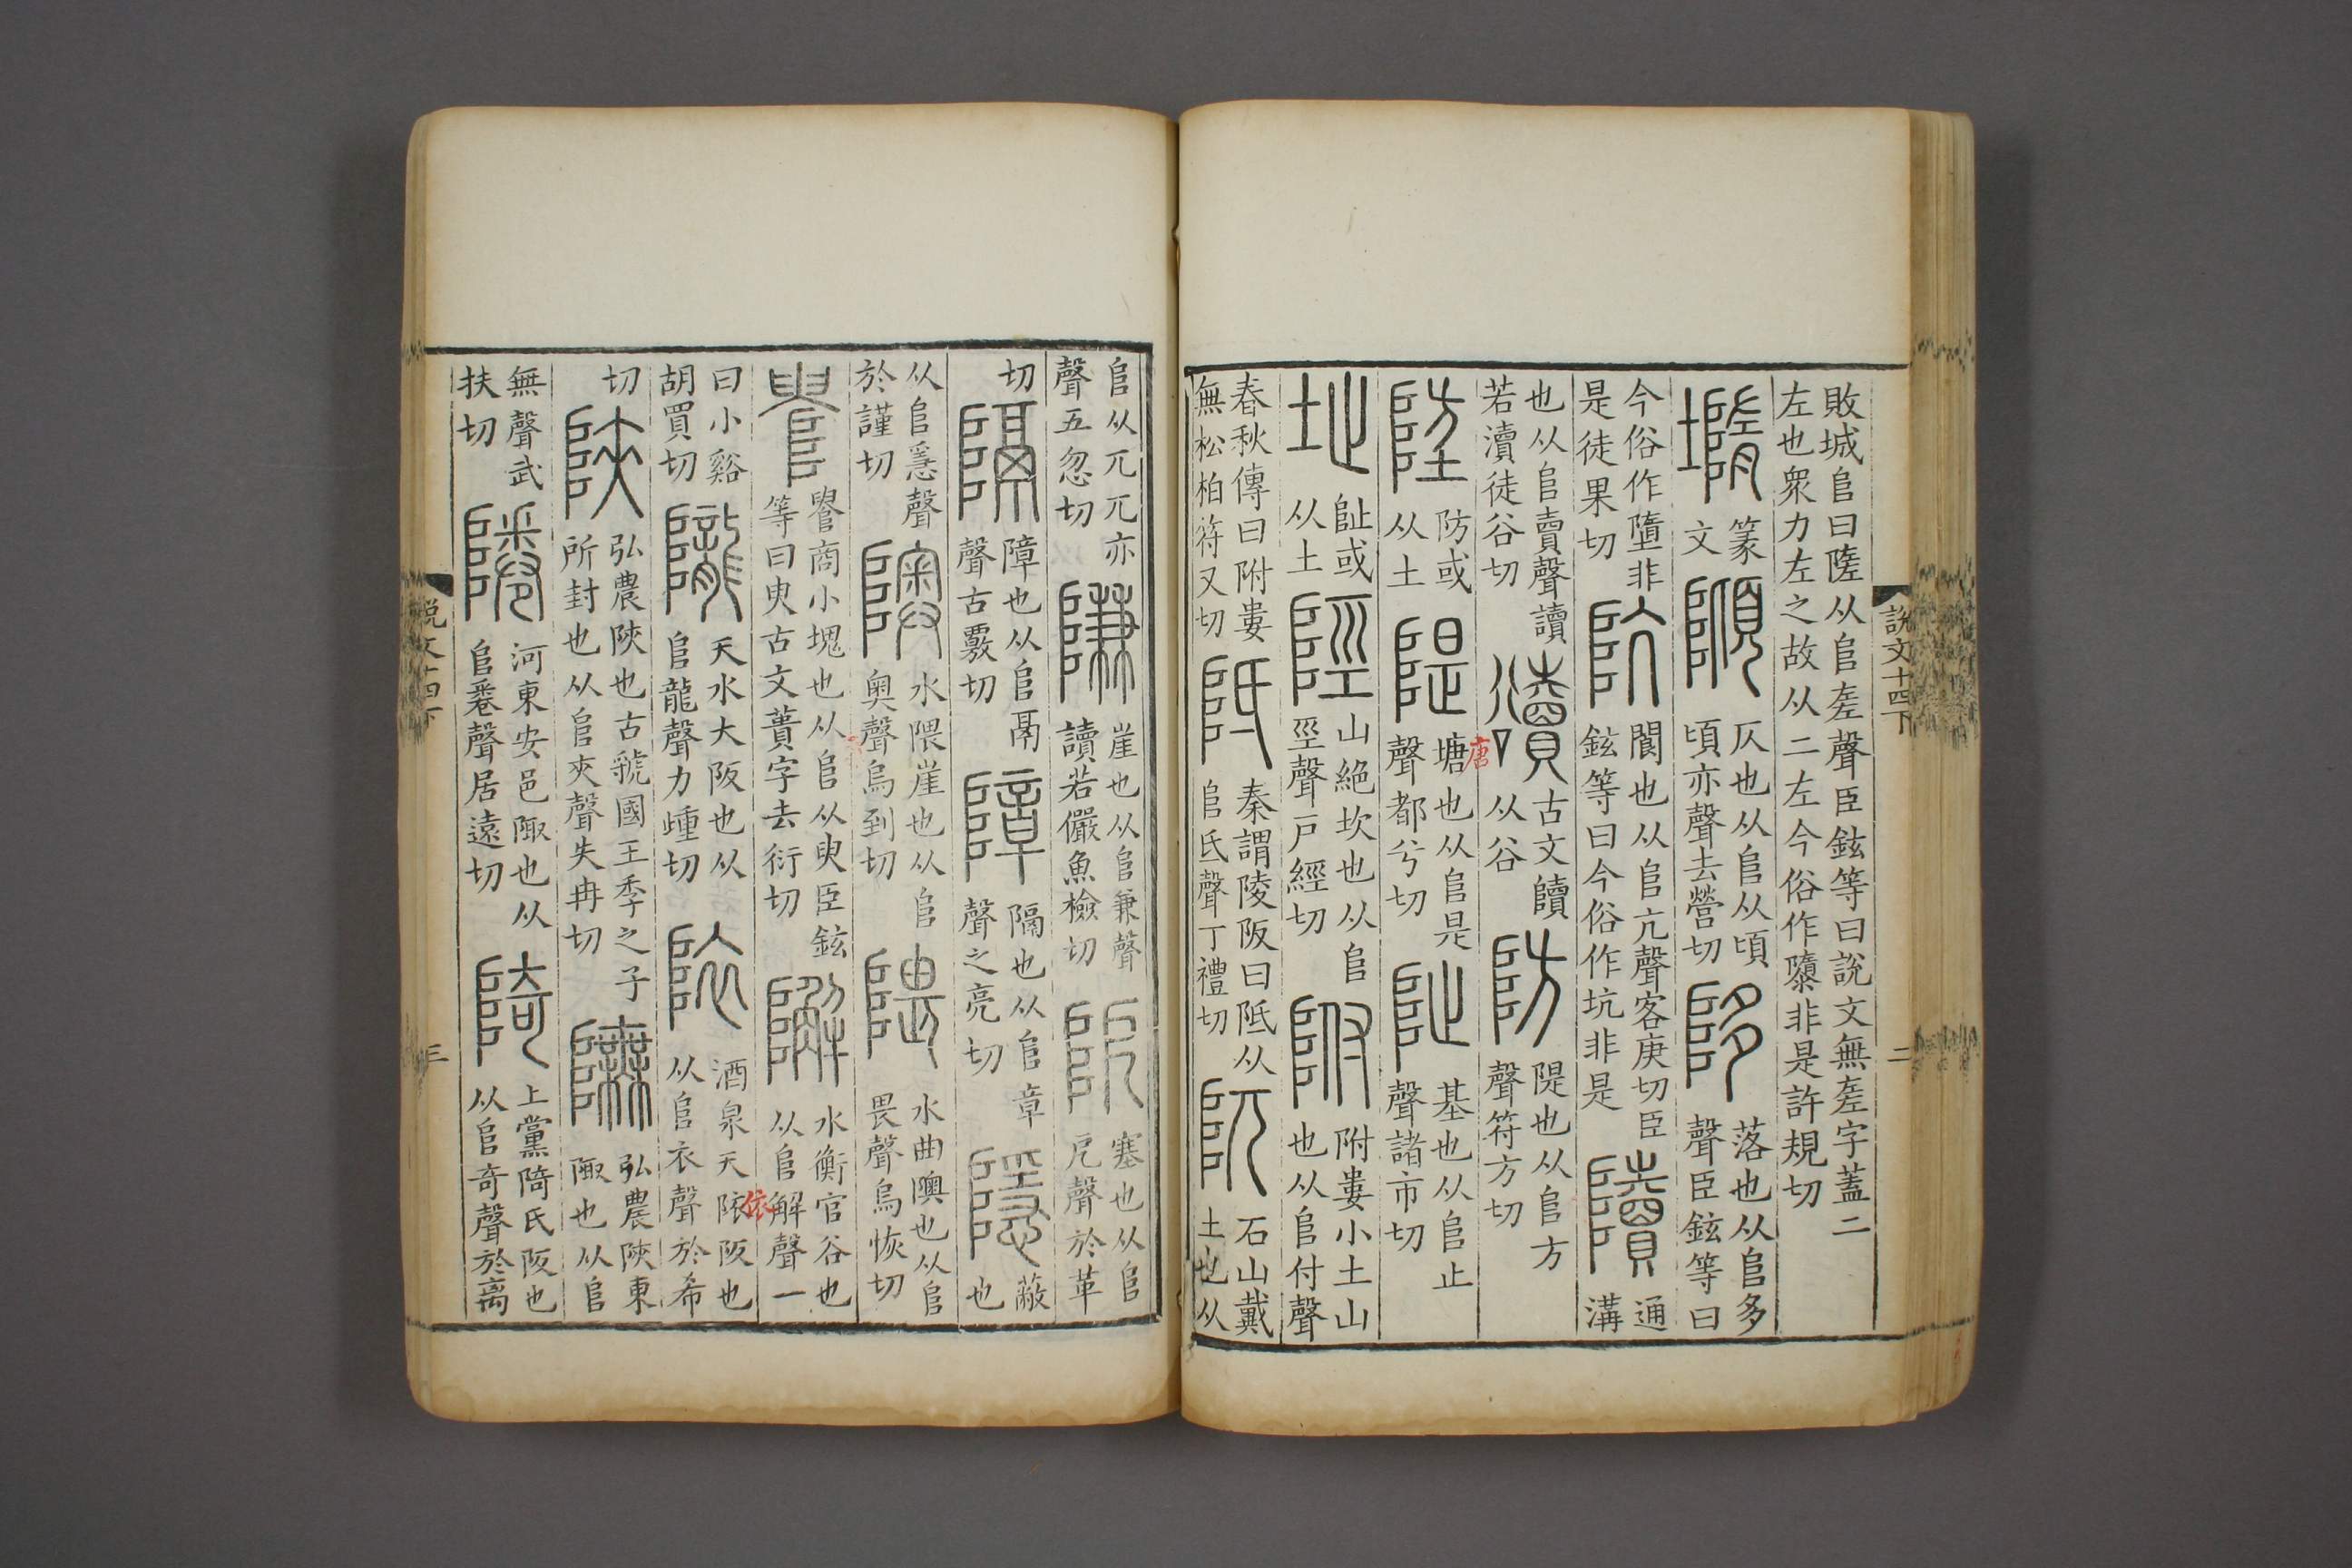 敗城𨸏曰隓从𨸏㢀聲臣鉉等曰說文無㢀字蓋二
左也眾力左之故从二左今俗作隳非是許規切
墮
篆
文
䫌
仄也从𨸏从頃
頃亦聲去營切
陊
落也从𨸏多
聲臣鉉等曰
今俗作墮非
是徒果切
阬
閬也从𨸏亢聲客庚切臣
鉉等曰今俗作坑非是
隫
通
溝
也从𨸏賣聲讀
若瀆徒谷切
豄
古文𨽍
从谷
防
隄也从𨸏方
聲符方切
埅
防或
从土
隄
塘也从𨸏是
聲都兮切
唐
阯
基也从𨸏止
聲諸市切
址
阯或
从土
陘
山絕坎也从𨸏
巠聲戶經切
附
附婁小土山
也从𨸏付聲
春秋傳曰附婁
無松柏符又切
阺
秦謂陵阪曰阺从
𨸏氐聲丁禮切
阢
石山戴
土也从
說文十四下
二
𨸏从兀兀亦
聲五忽切
隒
崖也从𨸏兼聲
讀若儼魚檢切
阸
塞也从𨸏
戹聲於革
切
隔
障也从𨸏鬲
聲古覈切
障
隔也从𨸏章
聲之亮切
隱
蔽
也
从𨸏㥯聲
於謹切
隩
水隈崖也从𨸏
奧聲烏到切
隈
水曲隩也从𨸏
畏聲烏恢切
𨺫
𨺫商小塊也从𨸏从臾臣鉉
等曰臾古文蕢字去衍切
䲒
水衡官谷也
从𨸏解聲一
曰小谿
胡買切
隴
天水大阪也从
𨸏龍聲力𨄔切
陭
酒泉天陭阪也
从𨸏衣聲於希
依
切
陝
弘農陝也古虢國王季之子
所封也从𨸏夾聲失冉切
𨼥
弘農陝東
陬也从𨸏
無聲武
扶切
䧲
河東安邑陬也从
𨸏卷聲居遠切
陭
上黨陭氏阪也
从𨸏奇聲於离
說文十四下
三